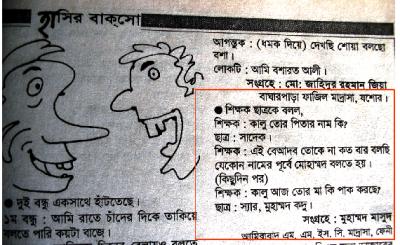 হাসির বাক্‌সো
আগন্তুক : (ধমক দিয়ে) দেখছি শোয়া বলছো
বশা।
লোকটি : আমি বশারত আলী।
সংগ্রহে : মো: জাহিদুর রহমান জিয়া
বাঘারপাড়া ফাজিল মাদ্রাসা, যশোর।
● শিক্ষক ছাত্রকে বলল,
শিক্ষক : কালু তোর পিতার নাম কি?
ছাত্র : সাদেক।
শিক্ষক : এই বেআদব তোকে না কত বার বলছি
যেকোন নামের পূর্বে মোহাম্মদ বলতে হয়।
(কিছুদিন পর)
শিক্ষক : কালু আজ তোর মা কি পাক করছে?
ছাত্র : স্যার, মুহাম্মদ কদু।
সংগ্রহে : মুহাম্মদ মাসুদ
আমিরাবাদ এম. এম. ইস. সি. মাদ্রাসা, ফেনী
● দুই বন্ধু একসাথে হাঁটতেছে।
১ম বন্ধু : আমি রাতে চাঁদের দিকে তাকিয়ে
বলতে পারি কয়টা বাজে।